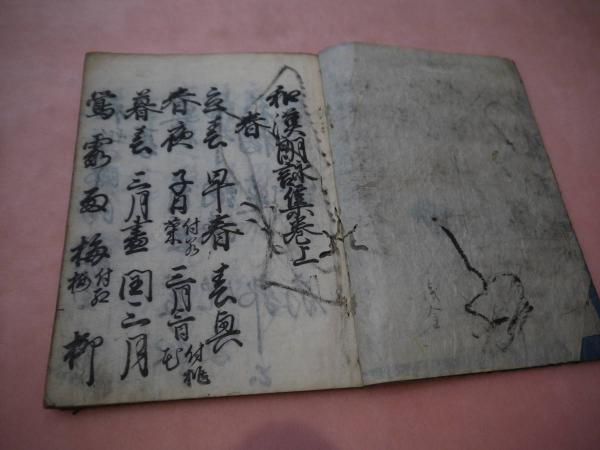 和漢朗詠集巻上
春
立春 早春 春興
春夜 子日付若菜 三月三日付桃花
暮春 三月盡 閏三月
鶯 霞 雨 梅付紅梅 柳